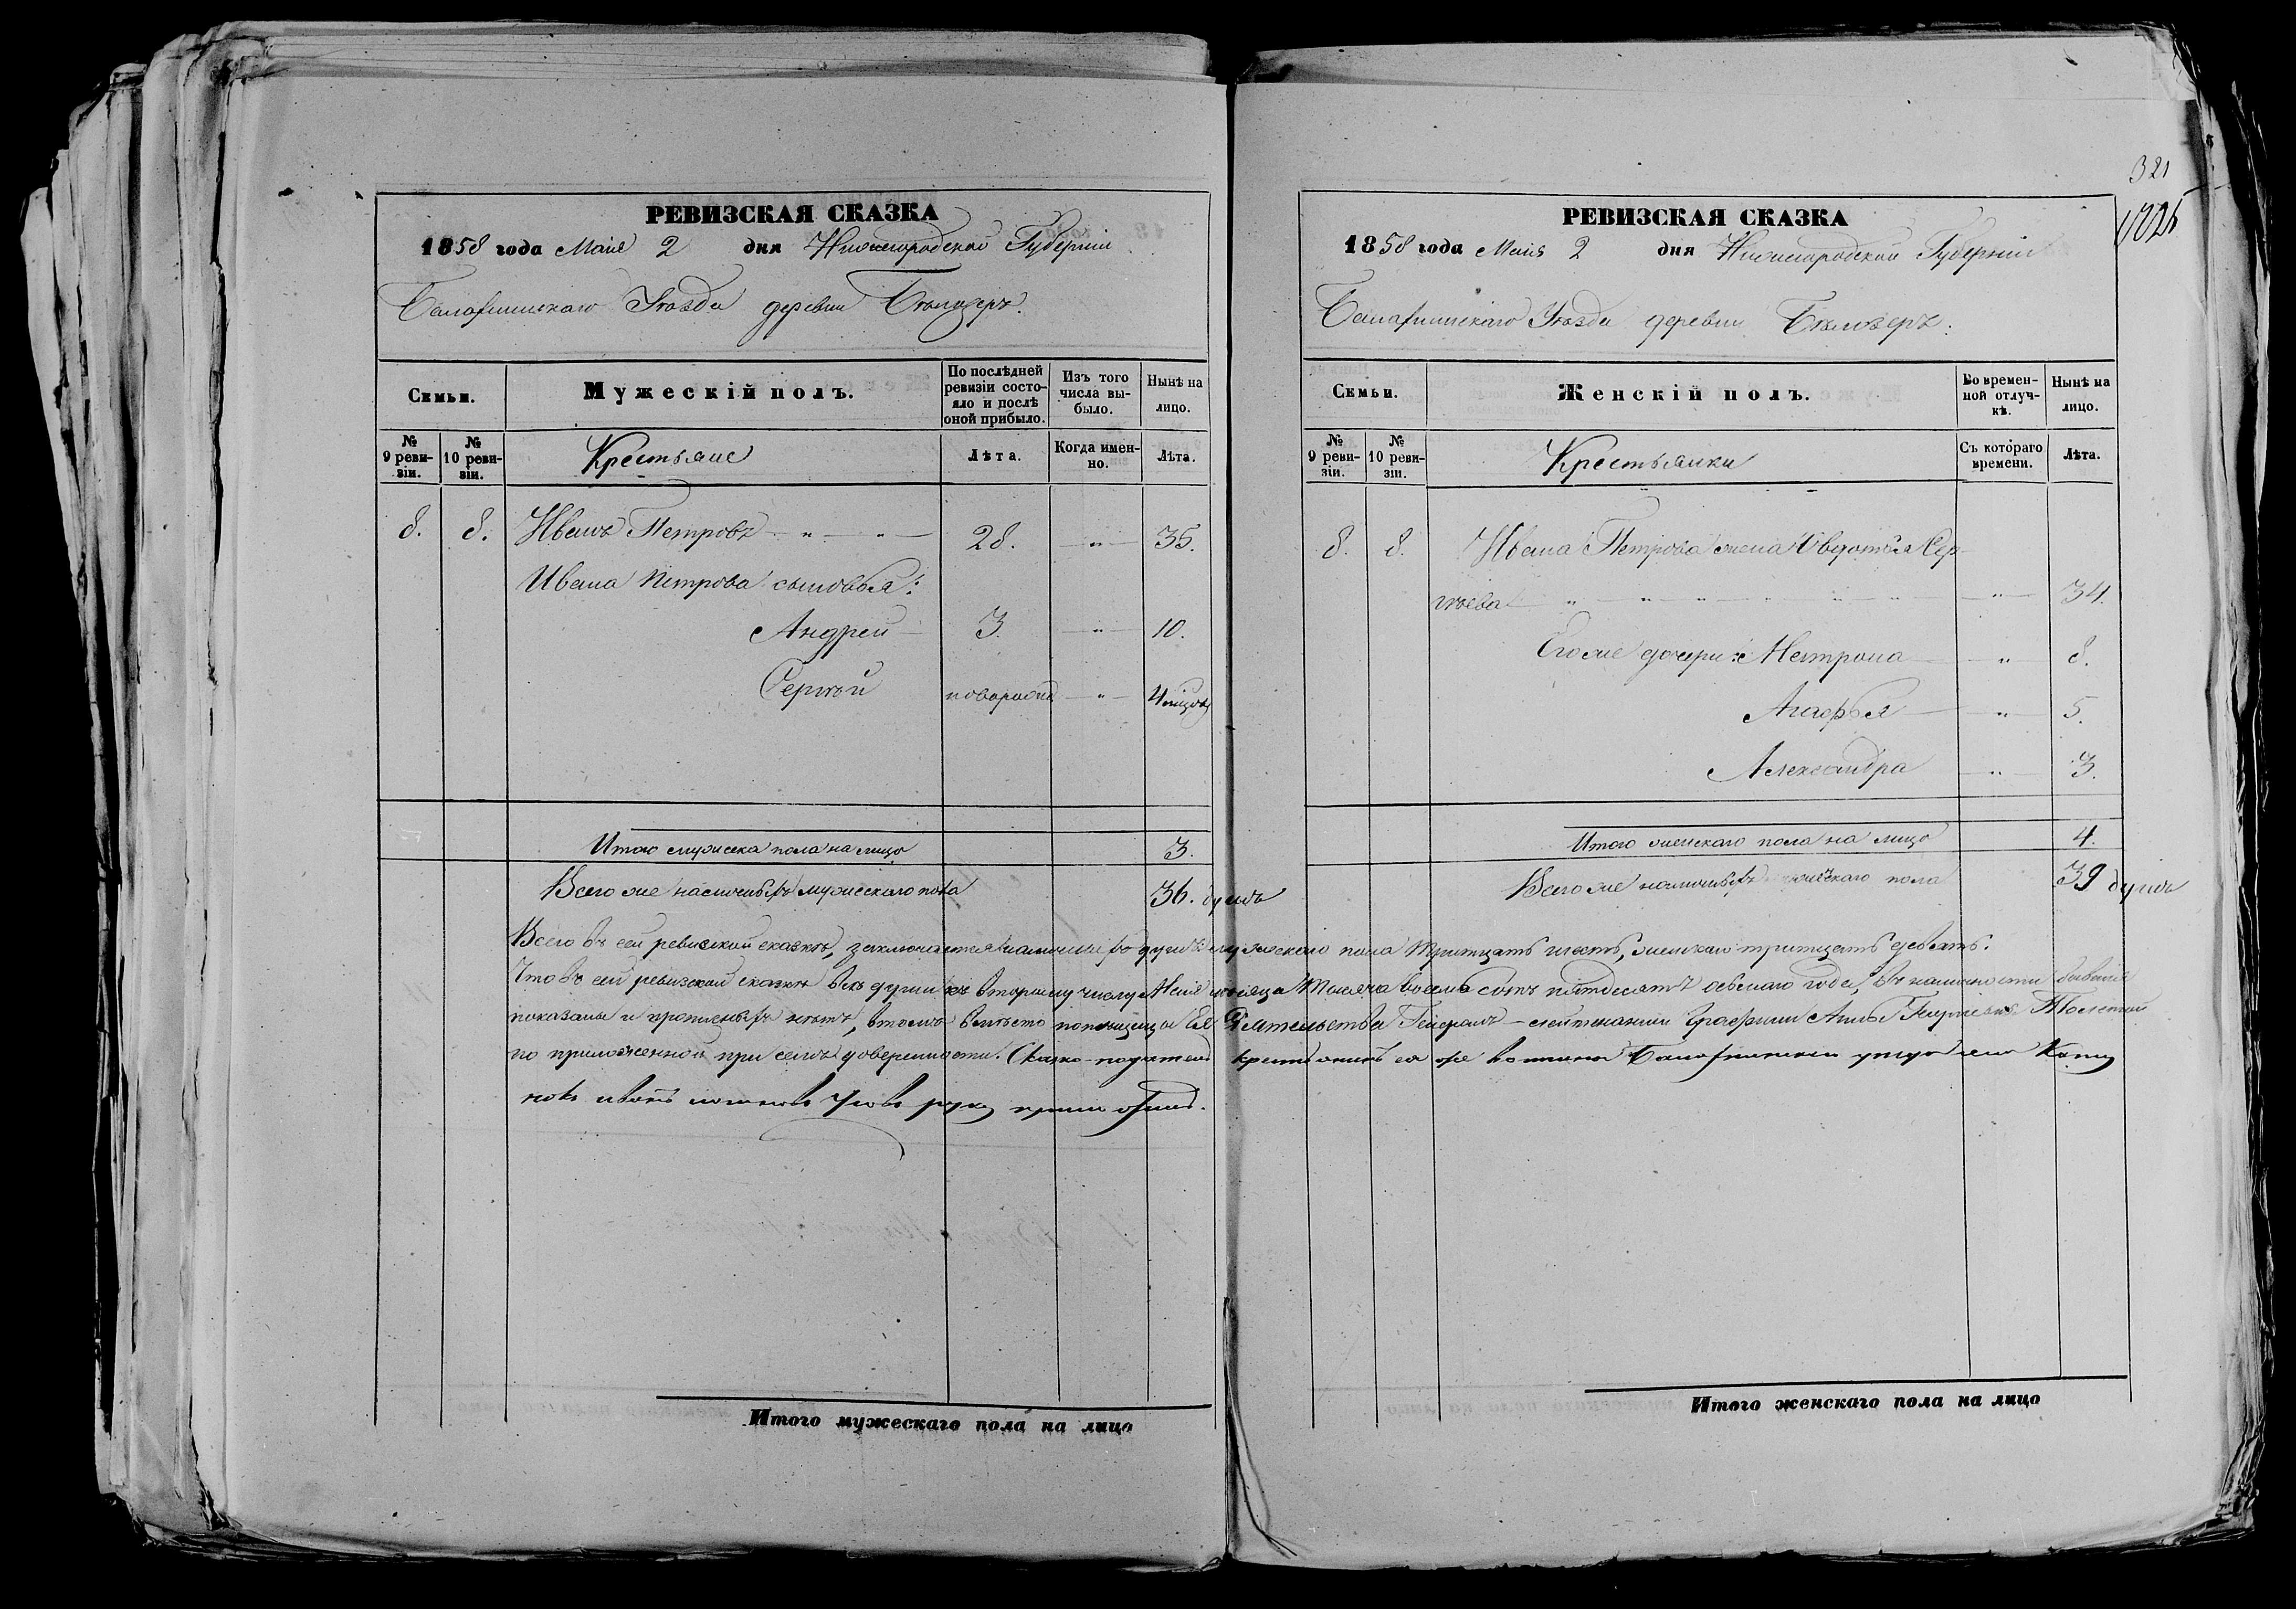 РЕВИЗСКАЯ СКАЗКА
1858 года Маія 2 дня Нижегородской Губерніи
Балахнинскаго Уѣзда деревни Бѣлозеръ.
Семьи.
Мужескій полъ.
По послѣдней ревизіи состояло и послѣ оной прибыло.
Изъ того числа выбыло.
Нынѣ на лицо.
№ 9 ревизіи.
№ 10 ревизіи.
Крестьяне
Лѣта.
Когда именно.
Лѣта.
8. 8. Иванъ Петровъ — „ — „ — 28. — „ — 35.
Ивана Петрова сыновья:
Андрей — 3. — „ — 10.
Сергѣй новорожд — „ — 4 мѣсяц
Итого мужеска пола на лицо 3.
Всего же наличныхъ мужескаго пола 36. душъ
321
РЕВИЗСКАЯ СКАЗКА
1858 года Маія 2 дня Нижегородской Губерніи
Балахнинскаго Уѣзда деревни Бѣлозеръ.
Семьи.
Женскій полъ.
Во временной отлучкѣ.
Нынѣ на лицо.
№ 9 ревизіи.
№ 10 ревизіи.
Крестьянки
Съ котораго времени.
Лѣта.
8. 8. Ивана Петрова жена Авдотья Сер-
гѣева — „ — 34.
Его же дочери: Матрона — „ — 8.
Агафья — „ — 5.
Александра — „ — 3.
Итого женскаго пола на лицо 4.
Всего же наличныхъ женскаго пола 39 душъ
Всего въ сей ревизской сказкѣ, заключается наличныхъ душъ мужескаго пола тритцать шесть, женскаго тритцать девять.
Что въ сей ревизской сказкѣ всѣ души къ второму числу Маія мѣсяца Тысяча восемь сотъ пятдесятъ осьмаго года, въ наличности бывшія
показаны и прописныхъ нѣтъ, въ томъ вмѣсто помѣщицы Ея Сіятельства Генералъ-лейтенантши Графини Анны Толстой
по приложенной при семъ довѣренности. Сказко-податель крестьянинъ ея же вотчины Балахнинскаго уѣзда села
руку приложилъ.
Итого мужескаго пола на лицо
Итого женскаго пола на лицо